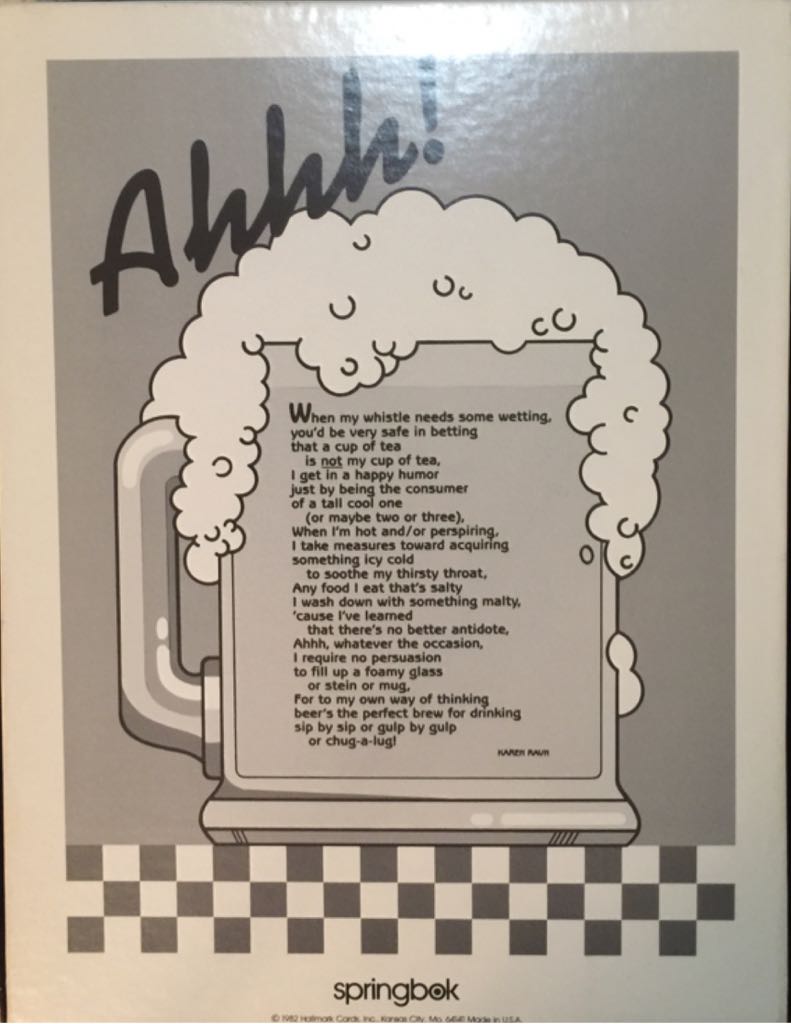 Ahhh!
When my whistle needs some wetting,
you'd be very safe in betting
that a cup of tea
is not my cup of tea,
I get in a happy humor
just by being the consumer
of a tall cool one
(or maybe two or three),
When I'm hot and/or perspiring,
I take measures toward acquiring
something icy cold
to soothe my thirsty throat,
Any food I eat that's salty
I wash down with something malty,
'cause I've learned
that there's no better antidote,
Ahhh, whatever the occasion,
I require no persuasion
to fill up a foamy glass
or stein or mug,
For to my own way of thinking
beer's the perfect brew for drinking
sip by sip or gulp by gulp
or chug-a-lug!
KAREN RAVN
springbok
© 1982 Hallmark Cards, Inc., Kansas City, Mo. 64141 Made in U.S.A.